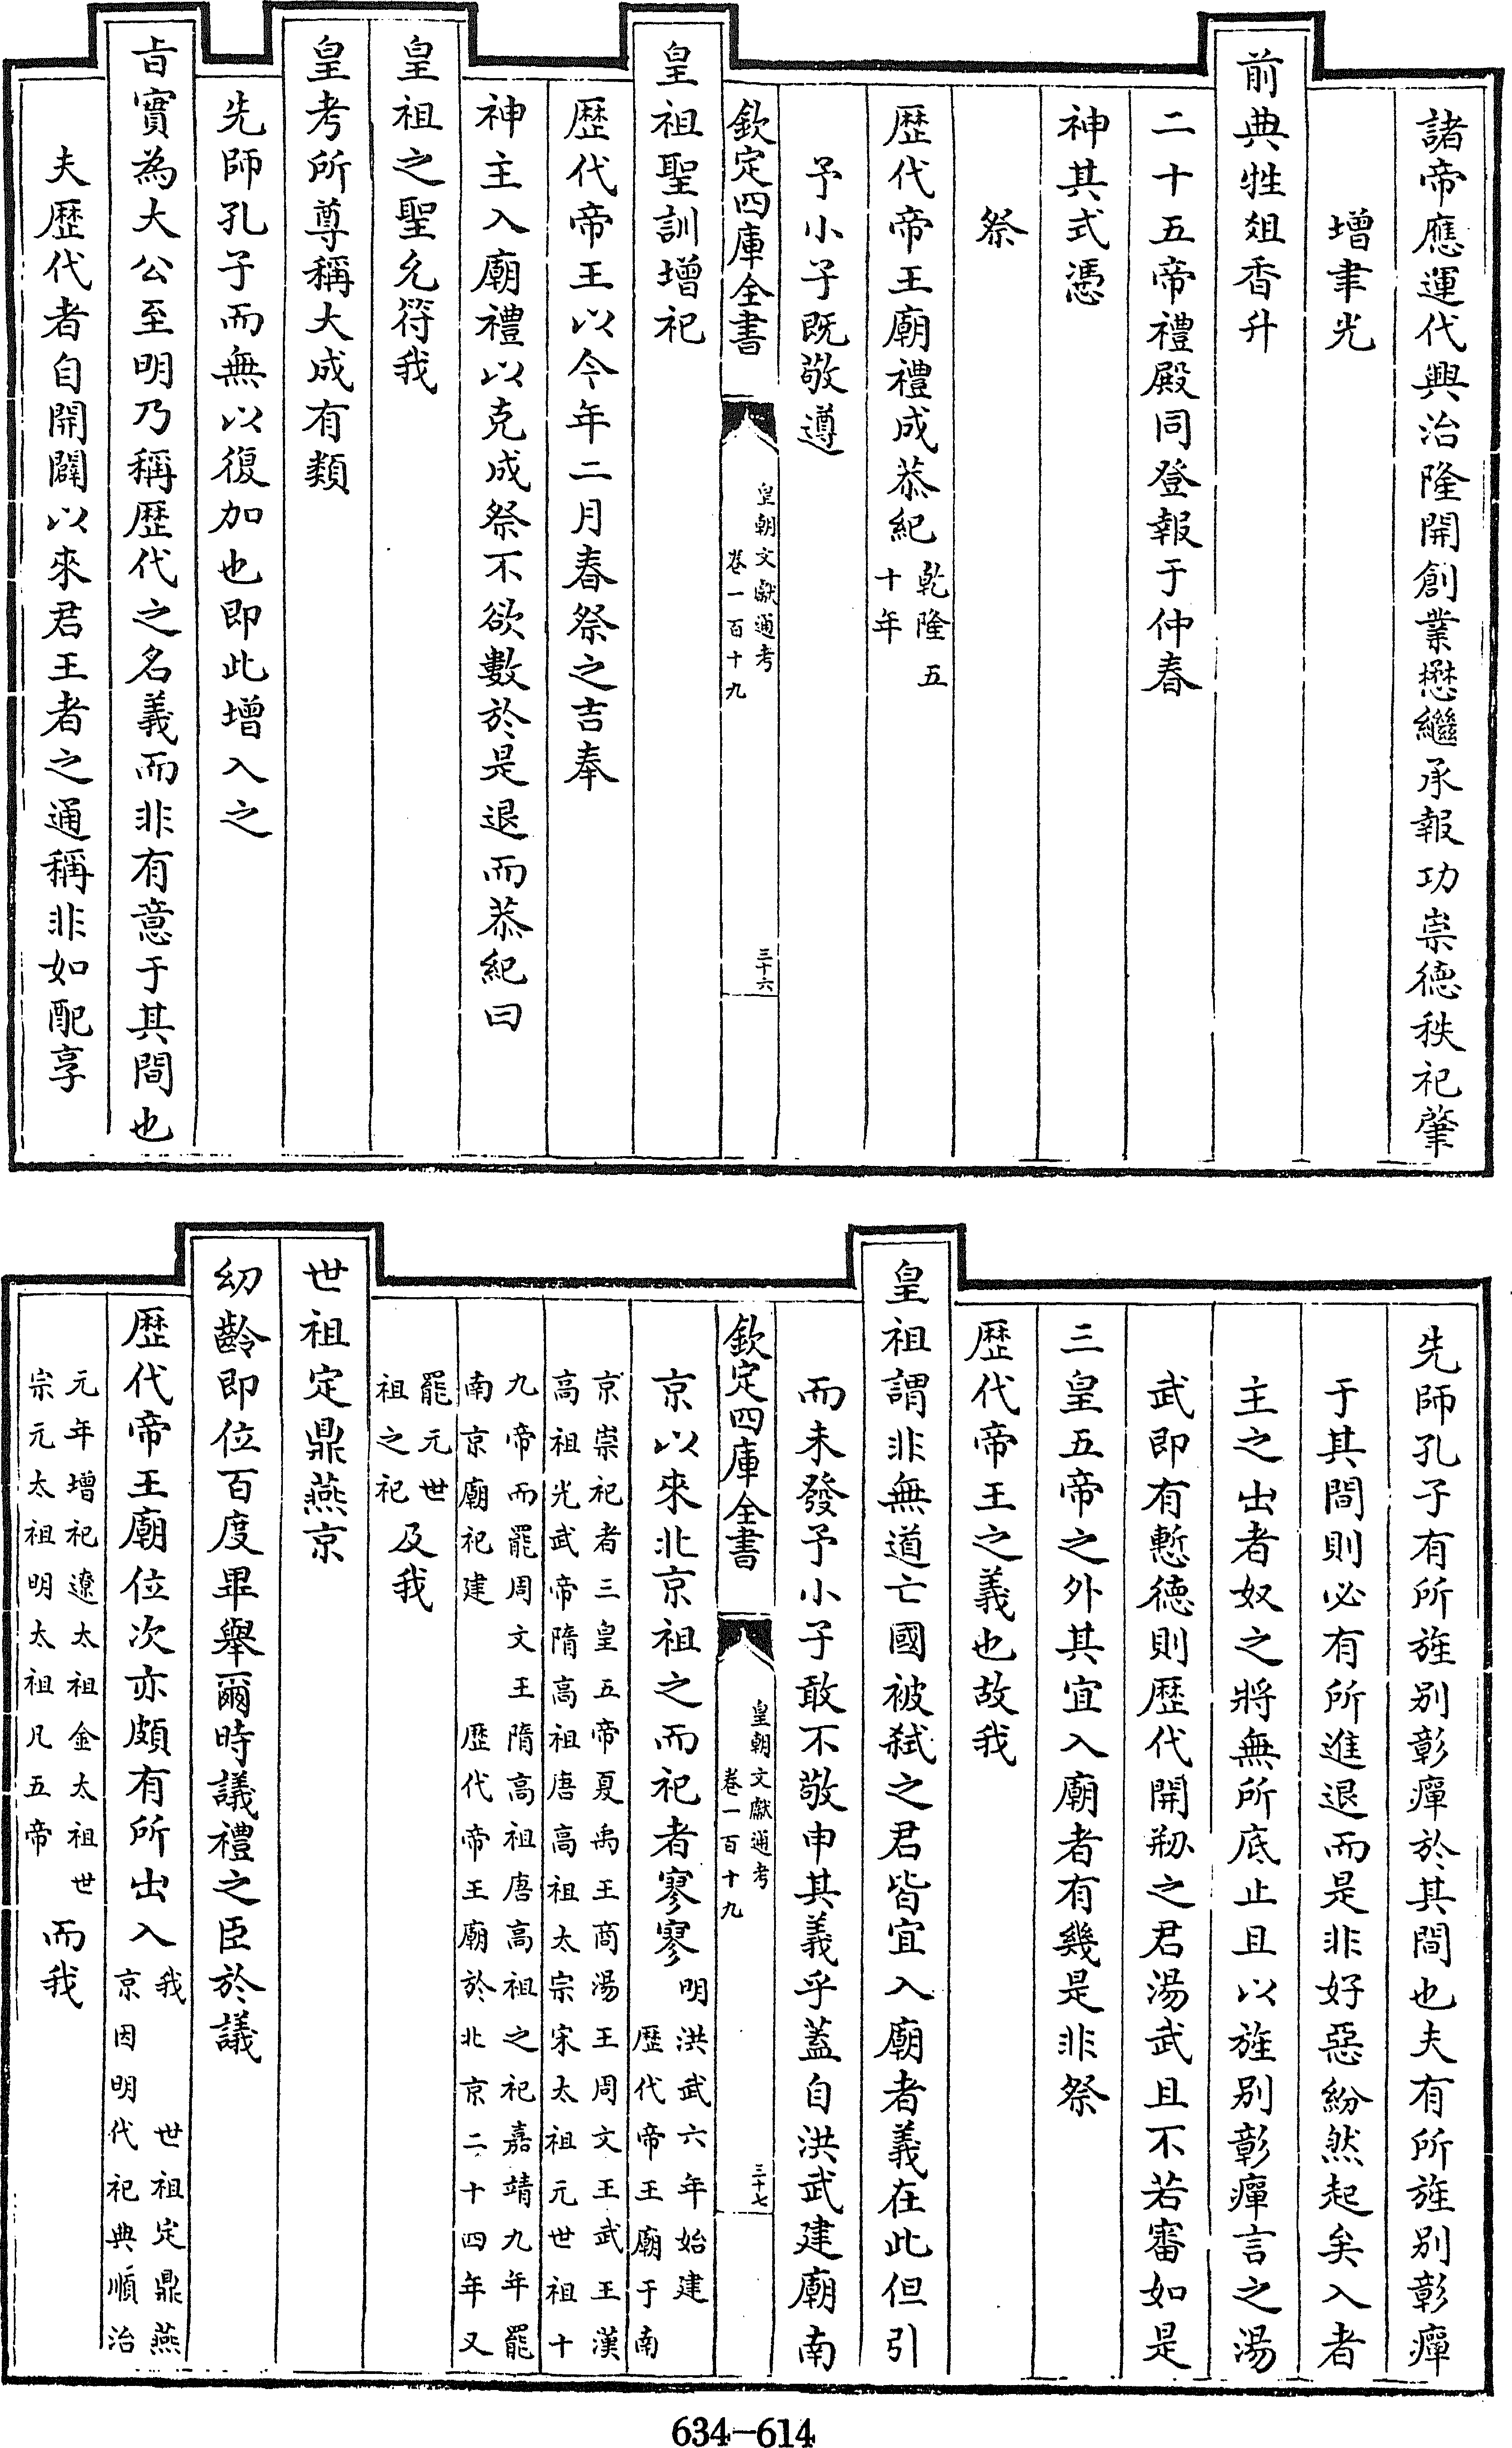 諸帝應運代興治隆開創業懋繼承報功崇德秩祀肇
增聿光
前典牲俎香升
二十五帝禮殿同登報于仲春
神其式憑
祭
歴代帝王廟禮成恭紀乾隆五
十年
予小子既敬遵
欽定四庫全書
皇朝文獻通考
卷一百十九
三十六
皇祖聖訓增祀
歴代帝王以今年二月春祭之吉奉
神主入廟禮以克成祭不欲數於是退而恭紀曰
皇祖之聖允符我
皇考所尊稱大成有類
先師孔子而無以復加也即此增入之
㫖實為大公至明乃稱歴代之名義而非有意于其間也
夫歴代者自開闢以來君王者之通稱非如配享
先師孔子有所旌别彰癉於其間也夫有所旌别彰癉
于其間則必有所進退而是非好惡紛然起矣入者
主之出者奴之將無所底止且以旌别彰癉言之湯
武即有慙德則歴代開剏之君湯武且不若審如是
三皇五帝之外其宜入廟者有幾是非祭
歴代帝王之義也故我
皇祖謂非無道亡國被弑之君皆宜入廟者義在此但引
而未發予小子敢不敬申其義乎蓋自洪武建廟南
欽定四庫全書
皇朝文獻通考
卷一百十九
三十七
京以來北京祖之而祀者寥寥明洪武六年始建
歴代帝王廟于南
京崇祀者三皇五帝夏禹王商湯王周文王武王漢
高祖光武帝隋高祖唐高祖太宗宋太祖元世祖十
九帝而罷周文王隋高祖唐高祖之祀嘉靖九年罷
南京廟祀建歴代帝王廟於北京二十四年又
罷元世
祖之祀及我
世祖定鼎燕京
幼齡即位百度畢舉爾時議禮之臣於議
歴代帝王廟位次亦頗有所出入我世祖定鼎燕
京因明代祀典順治
元年增祀遼太祖金太祖世
宗元太祖明太祖凡五帝而我
634-614